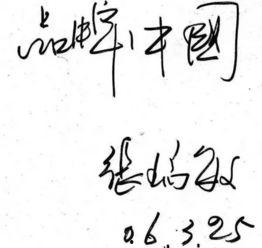 品牌中國
張瑞敏
06.3.25